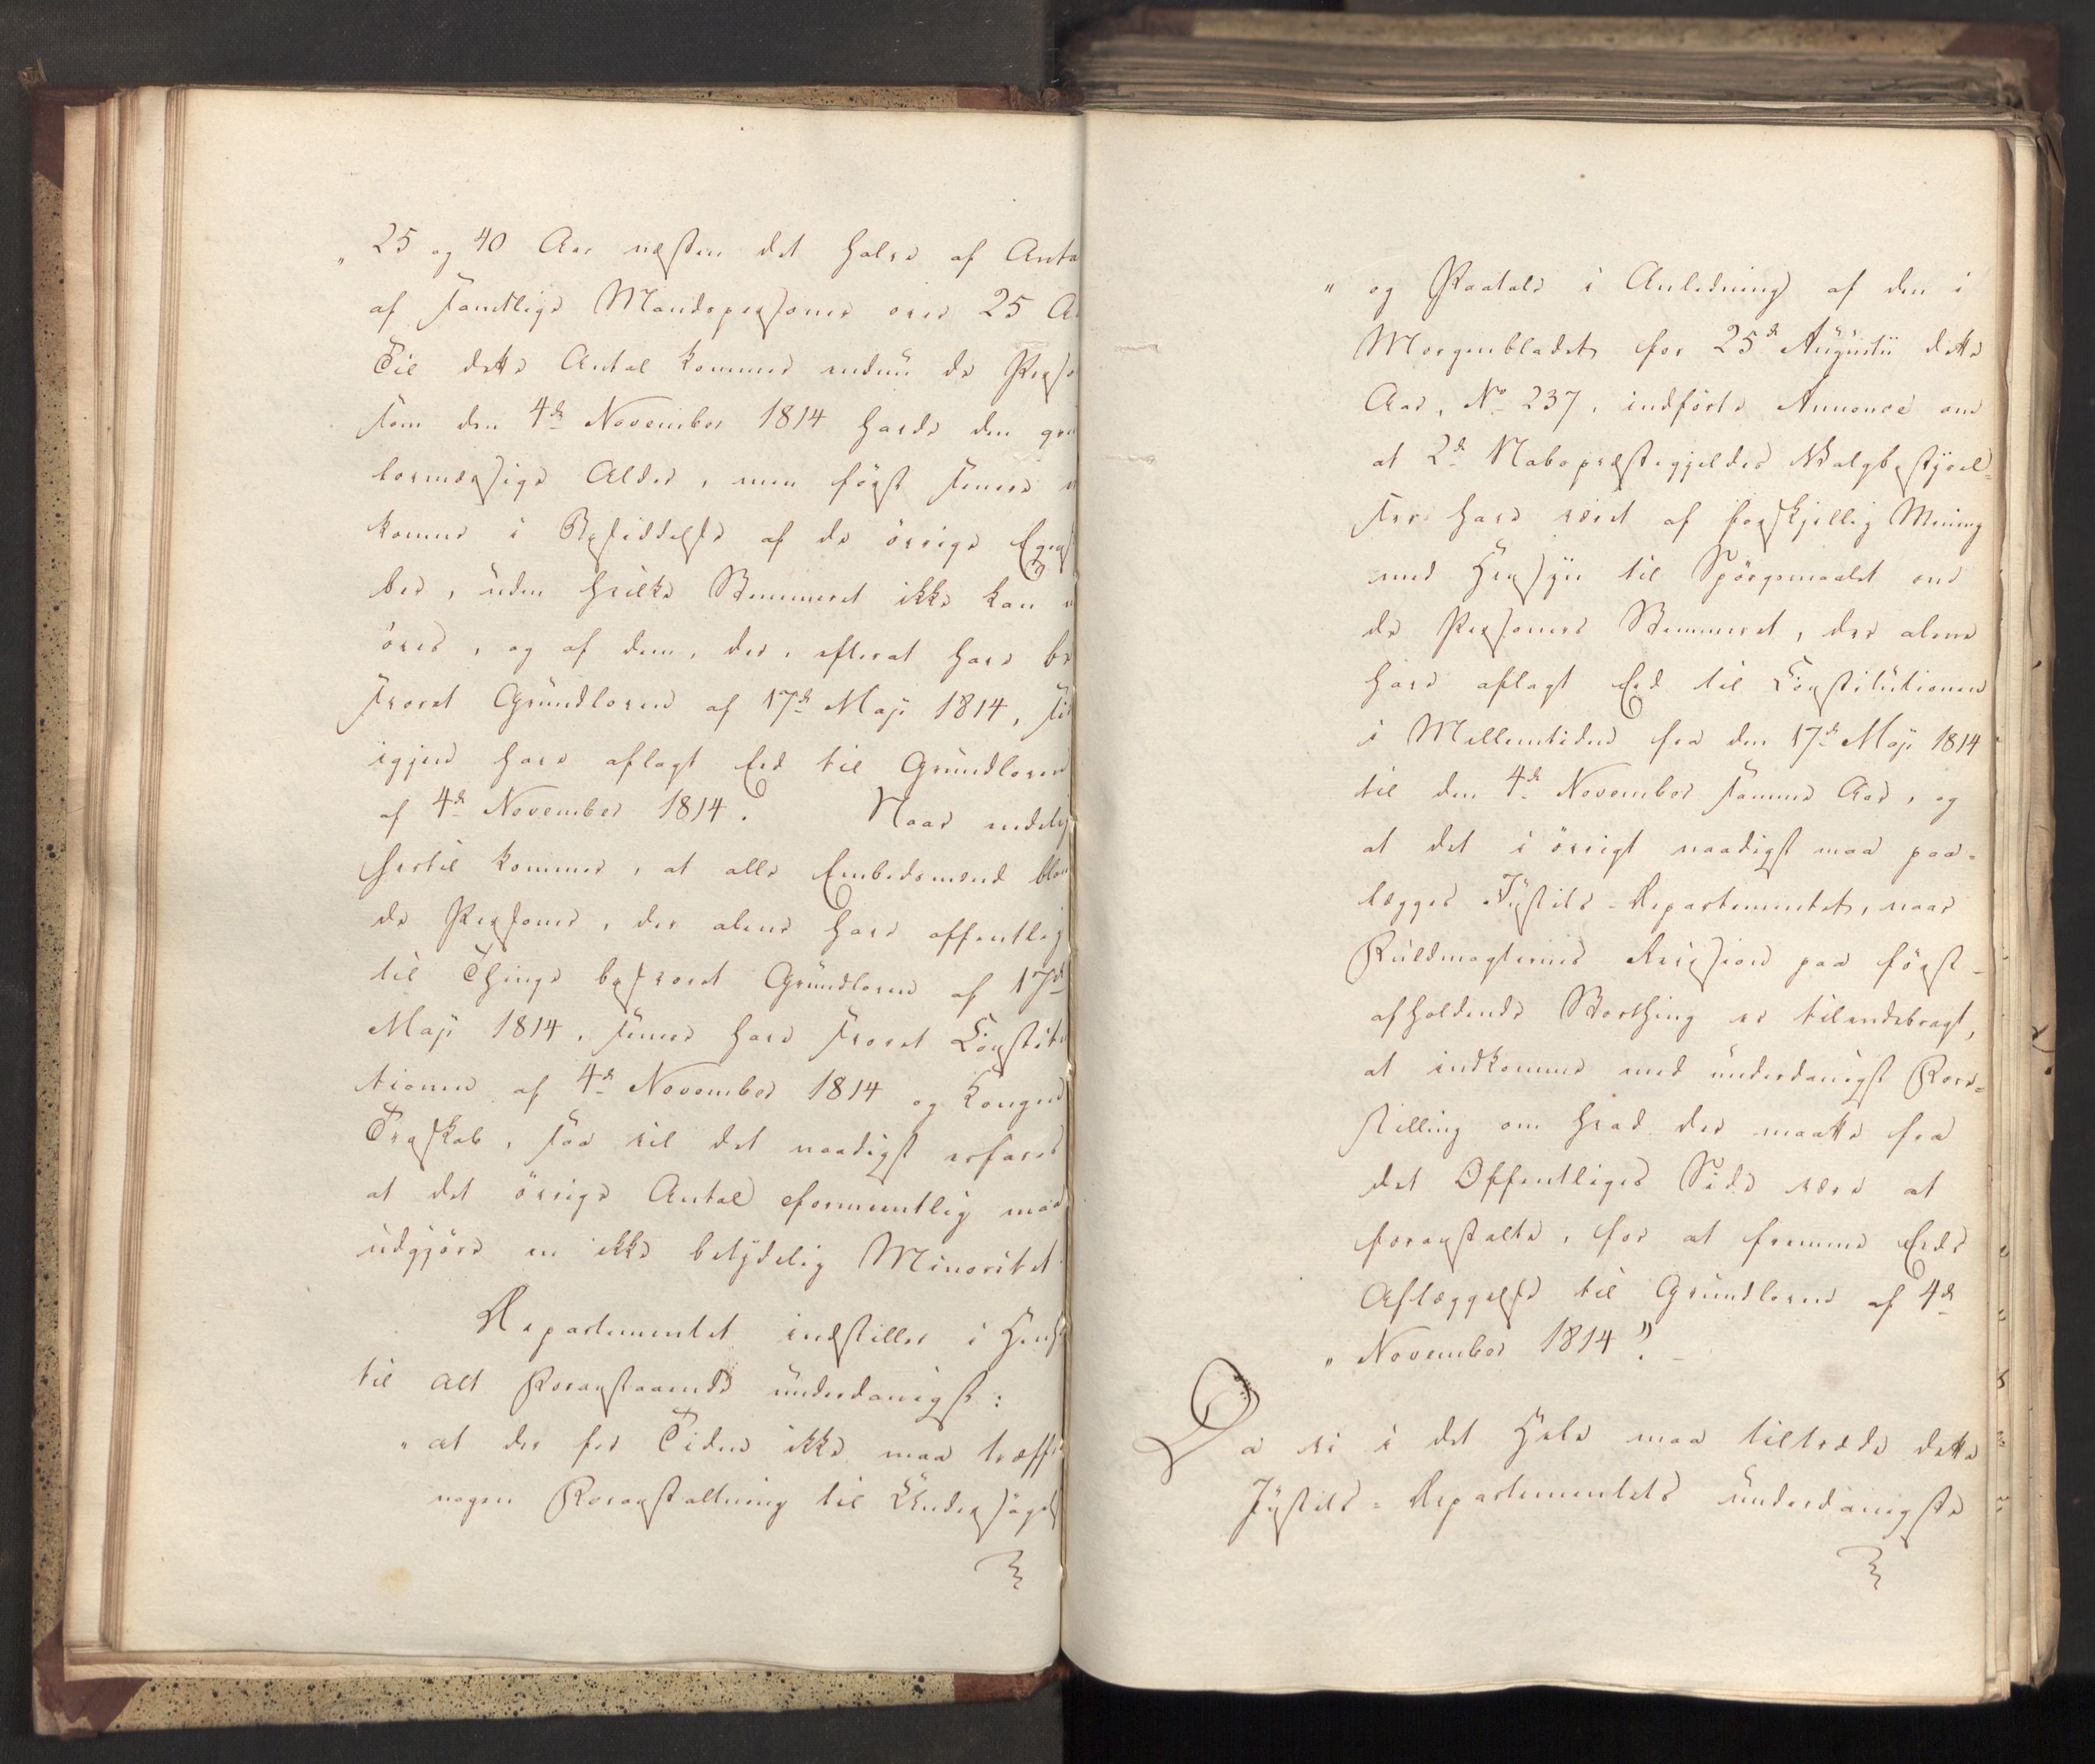 „ 25 og 40 Aar næsten det halve af Anta
af samtlige Mandspersoner over 25 A
Til dette Antal kommer endnu de Perso
som den 4de November 1814 havde den gru
lovmæssige Alder, men først senere e
komne i Besiddelse af de övrige Egens
ber, uden hvilke Stemmeret ikke kan u
öves, og af dem, der, efterat have be
svoret Grundloven af 17de Maji 1814, si
igjen have aflagt Eed til Grundloven
af 4de November 1814. Naar endelig
hertil kommer, at alle Embedsmænd blan
de Personer, der alene have offentlig
til Thinge besvoret Grundloven af 17de
Maji 1814, senere have svoret Constitu
tionen af 4de November 1814 og Kongen
Troskab, saa vil det naadigst erfares
at det övrige Antal formeentlig maa
udgjöre en ikke betydelig Minoritet
Departementet indstiller i Hens
til alt Foranstaaende underdanigst:
„ at der for Tiden ikke maa træffe
nogen Foranstaltning til Undersögels
„ og Paatale i Anledning af den i
Morgenbladet for 25de Augustii dette
Aar, No 237, indförte Annonce om
at 2de Nabopræstegjelders Valgbestyrel-
ser have været af forskjellig Mening
med Hensyn til Spörgsmaalet om
de Personers Stemmeret, der alene
have aflagt Eed til Constitutionen
i Mellemtiden fra den 17de Maji 1814
til den 4de November samme Aar, og
at det i övrigt naadigst maa paa-
lægges Justits-Departementet, naar
Fuldmagternes Revision paa först-
afholdende Storthing er tilendebragt,
at indkomme med underdanigst Fore-
stilling om hvad der maatte fra
det Offentliges Side være at
foranstalte, for at fremme Eeds
Aflæggelse til Grundloven af 4de
„ November 1814".
Da vi i det Hele maa tiltræde dette
Justits-Departementets underdanigste